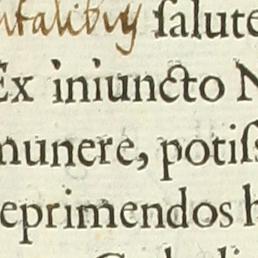 ntalibus salute
Ex iniuncto N
munere, potiſ
eprimendos h